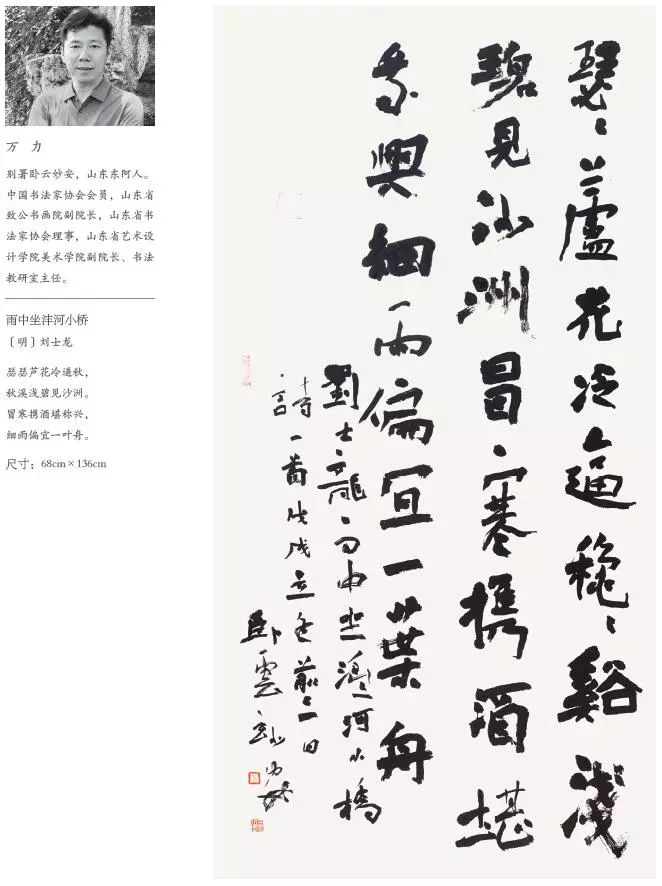 万 力
别署卧云妙安，山东东阿人。
中国书法家协会会员，山东省
致公书画院副院长，山东省书
法家协会理事，山东省艺术设
计学院美术学院副院长、书法
教研室主任。
雨中坐沣河小桥
〔明〕刘士龙
瑟瑟芦花冷逼秋，
秋溪浅碧见沙洲。
冒寒携酒堪称兴，
细雨偏宜一叶舟。
尺寸：68cm×136cm
瑟〻蘆花冷逼穐〻谿淺
碧見沙洲冒寒携酒堪
興細雨偏宜一葉舟
劉士龍雨中坐灃河小橋
詩一首戊戌立冬前一日
卧雲妙